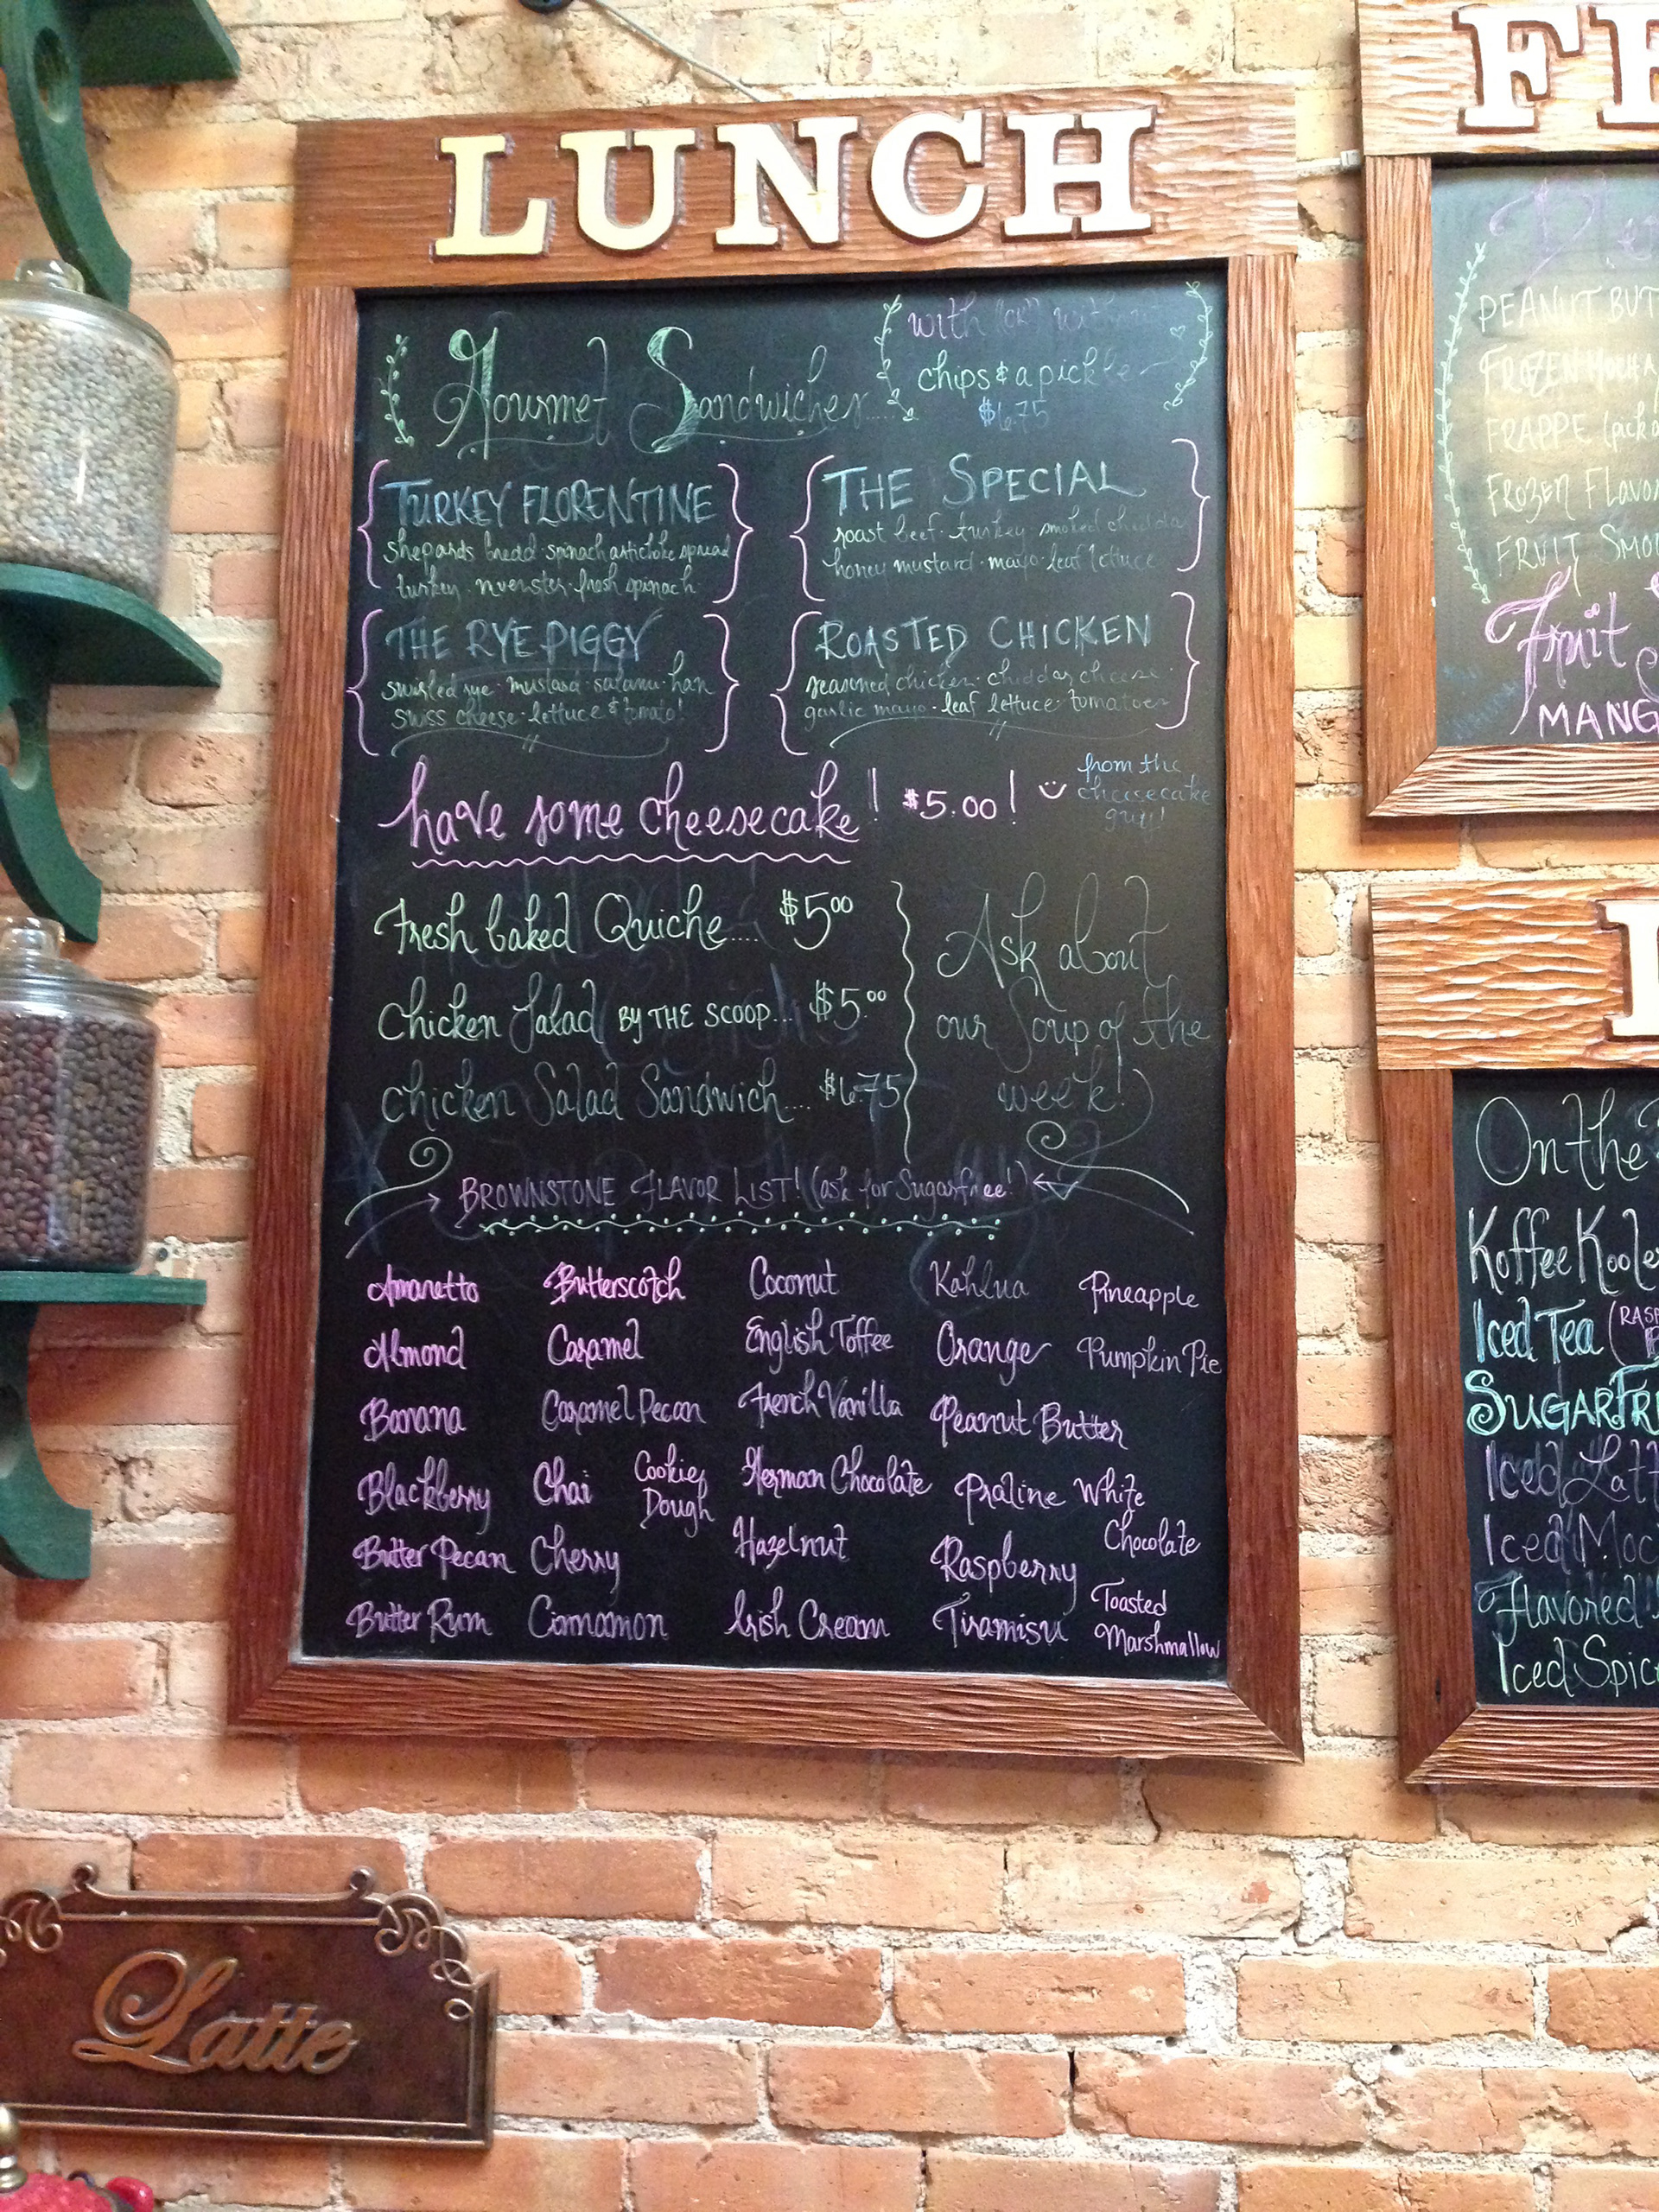 LUNCH
Gourmet Sandwiches....
with (or) without
chips & a pickle
$6.75
TURKEY FLORENTINE
shepards bread · spinach artichoke spread
turkey · muenster · fresh spinach
THE SPECIAL
roast beef · turkey · smoked cheddar
honey mustard · mayo · leaf lettuce
THE RYE PIGGY
swirled rye · mustard · salami · ham
swiss cheese · lettuce & tomato!
ROASTED CHICKEN
seasoned chicken · cheddar cheese
garlic mayo · leaf lettuce · tomatoes
have some cheesecake! $5.00!
from the
cheesecake
guy!
Fresh baked Quiche.... $5.00
Chicken Salad BY THE SCOOP... $5.00
Chicken Salad Sandwich.... $6.75
Ask about
our Soup of the
week!
BROWNSTONE FLAVOR LIST! (ask for Sugarfree!)
Amaretto
Almond
Banana
Blackberry
Butter Pecan
Butter Rum
Butterscotch
Caramel
Caramel Pecan
Chai
Cookie
Dough
Cherry
Cinnamon
Coconut
English Toffee
French Vanilla
German Chocolate
Hazelnut
Irish Cream
Kahlua
Orange
Peanut Butter
Praline
Raspberry
Tiramisu
Pineapple
Pumpkin Pie
White
Chocolate
Toasted
Marshmallow
PEANUT BUT
FROZEN MOCHA
FRAPPE
FROZEN FLAVO
FRUIT SMOO
Fruit
MANG
On the
Koffee Koole
Iced Tea (RASP
SUGARFR
Iced Latt
Iced Moc
Flavored
Iced Spic
Latte